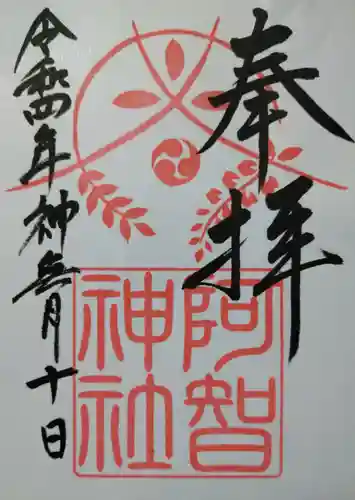 奉拝
阿智
神社
令和四年神無月十日